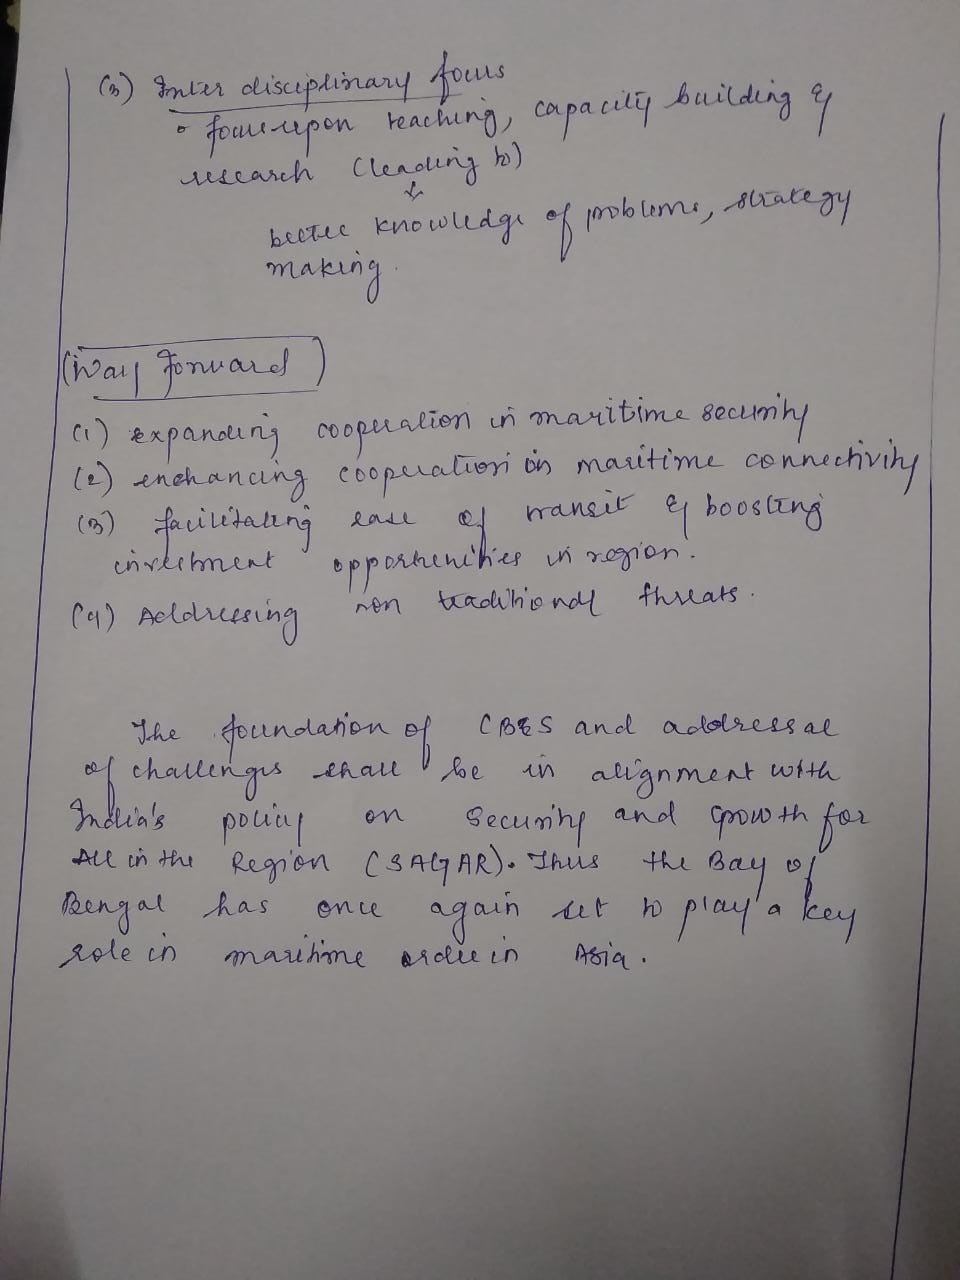 (3) Inter disciplinary focus
• focus upon teaching, capacity building &
research (leading to)
↓
better knowledge of problems, strategy
making.
(Way Forward)
(1) expanding cooperation in maritime security
(2) enchancing cooperation on maritime connectivity
(3) facilitating ease of transit & boosting
investment opportunities in region.
(4) Addressing non traditional threats.
The foundation of CBS and addressal
of challenges shall be in alignment with
India's policy on Security and Growth for
All in the Region (SAGAR). Thus the Bay of
Bengal has once again set to play a key
role in maritime order in Asia.